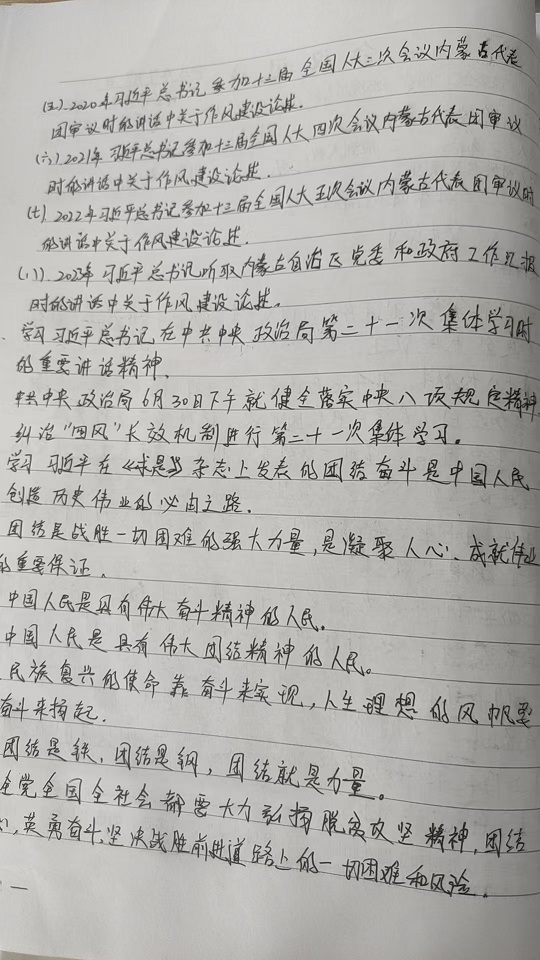 (五).2020年习近平总书记参加十三届全国人大三次会议内蒙古代表
团审议时的讲话中关于作风建设论述.
(六).2021年习近平总书记参加十三届全国人大四次会议内蒙古代表团审议
时的讲话中关于作风建设论述.
(七).2022年习近平总书记参加十三届全国人大五次会议内蒙古代表团审议时
的讲话中关于作风建设论述.
(八).2023年习近平总书记听取内蒙古自治区党委和政府工作汇报
时的讲话中关于作风建设论述.
、学习习近平总书记在中共中央政治局第二十一次集体学习时
的重要讲话精神、
中共中央政治局6月30日下午就健全落实中央八项规定精神
纠治“四风”长效机制进行第二十一次集体学习。
学习习近平在《求是》杂志上发表的团结奋斗是中国人民
创造历史伟业的必由之路.
团结是战胜一切困难的强大力量,是凝聚人心、成就伟业
的重要保证、
中国人民是具有伟大奋斗精神的人民。
中国人民是具有伟大团结精神的人民。
民族复兴的使命靠奋斗来实现,人生理想的风帆要
奋斗来扬起.
团结是铁,团结是钢,团结就是力量。
全党全国全社会都要大力弘扬脱贫攻坚精神,团结
,英勇奋斗,坚决战胜前进道路上的一切困难和风险。